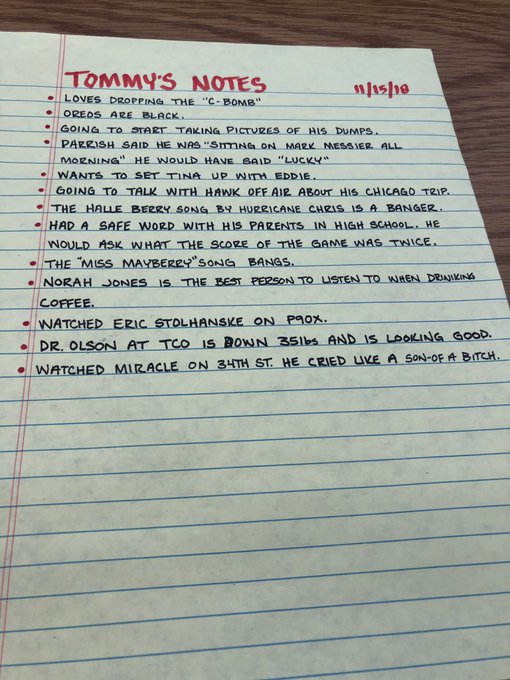 TOMMY'S NOTES 11/15/18
• LOVES DROPPING THE "C-BOMB"
• OREOS ARE BLACK.
• GOING TO START TAKING PICTURES OF HIS DUMPS.
• PARRISH SAID HE WAS "SITTING ON MARK MESSIER ALL
MORNING" HE WOULD HAVE SAID "LUCKY"
• WANTS TO SET TINA UP WITH EDDIE.
• GOING TO TALK WITH HAWK OFF AIR ABOUT HIS CHICAGO TRIP.
• THE HALLE BERRY SONG BY HURRICANE CHRIS IS A BANGER.
• HAD A SAFE WORD WITH HIS PARENTS IN HIGH SCHOOL. HE
WOULD ASK WHAT THE SCORE OF THE GAME WAS TWICE.
• THE "MISS MAYBERRY" SONG BANGS.
• NORAH JONES IS THE BEST PERSON TO LISTEN TO WHEN DRINIKING
COFFEE.
• WATCHED ERIC STOLHANSKE ON P90X.
• DR. OLSON AT TCO IS DOWN 35lbs AND IS LOOKING GOOD.
• WATCHED MIRACLE ON 34TH ST. HE CRIED LIKE A SON-OF A BITCH.